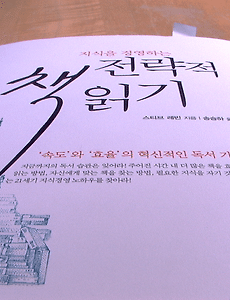 지식을 경영하는
전략적
책 읽기
스티브 레빈 지음 송승하
'속도'와 '효율'의 혁신적인 독서 기
지금까지의 독서 습관은 잊어라! 주어진 시간 내 더 많은 책을 효
읽는 방법, 자신에게 맞는 책을 찾는 방법, 필요한 지식을 자기 것
는 21세기 지식경영 노하우를 찾아라!